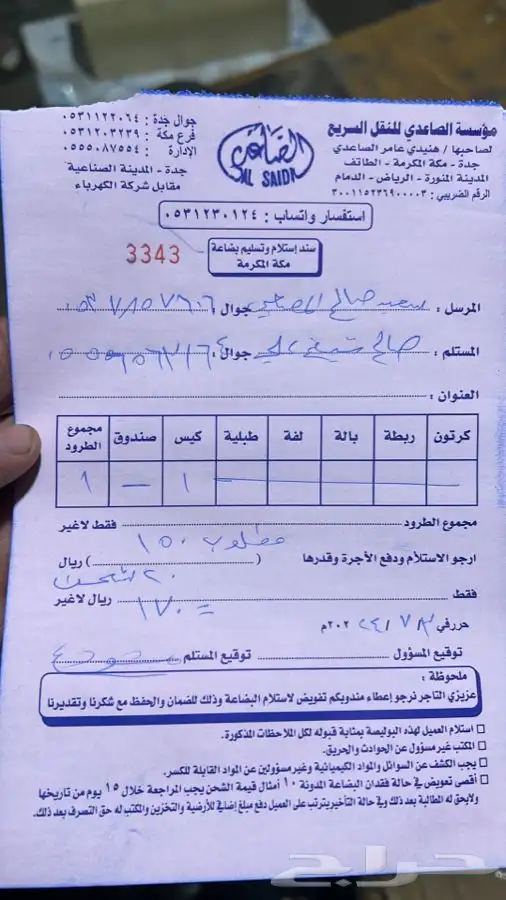 مؤسسة الصاعدي للنقل السريع
لصاحبها / هنيدي عامر الصاعدي
جدة - مكة المكرمة - الطائف
المدينة المنورة - الرياض - الدمام
الرقم الضريبي : ٣٠٠١١٥٢٣٦٩٠٠٠٠٣
الصاعدي
AL SAIDI
جوال جدة : ٠٥٣١١٢٢٠٦٤
فرع مكة : ٠٥٣١٢٠٣٢٣٩
الإدارة : ٠٥٥٥٠٨٧٥٥٤
جدة - المدينة الصناعية
مقابل شركة الكهرباء
استفسار واتساب : ٠٥٣١٢٣٠١٢٤
سند إستلام وتسليم بضاعة
مكة المكرمة
3343
المرسل : سعيد صالح جوال :
المستلم : صالح جوال :
العنوان :
كرتون ربطة بالة لفة طبلية كيس صندوق مجموع الطرود
١ — ١
مجموع الطرود فقط لاغير
مطلوب ١٥٠
ارجو الاستلام ودفع الأجرة وقدرها ( ) ريال
٢٠
فقط ١٧٠ ريال لاغير
حرر في / ٧ / ٢٠٢٤م
توقيع المسؤول توقيع المستلم
ملحوظة :
عزيزي التاجر نرجو إعطاء مندوبكم تفويض لاستلام البضاعة وذلك للضمان والحفظ مع شكرنا وتقديرنا
□ استلام العميل لهذه البوليصة بمثابة قبوله لكل الملاحظات المذكورة.
□ المكتب غير مسؤول عن الحوادث والحريق.
□ يجب الكشف عن السوائل والمواد الكيميائية وغير مسؤولين عن المواد القابلة للكسر.
□ أقصى تعويض في حالة فقدان البضاعة المدونة ١٠ أمثال قيمة الشحن يجب المراجعة خلال ١٥ يوم من تاريخها
ولايحق له المطالبة بعد ذلك وفي حالة التأخير يترتب على العميل دفع مبلغ إضافي للأرضية والتخزين والمكتب له حق التصرف بعد ذلك.
حراج